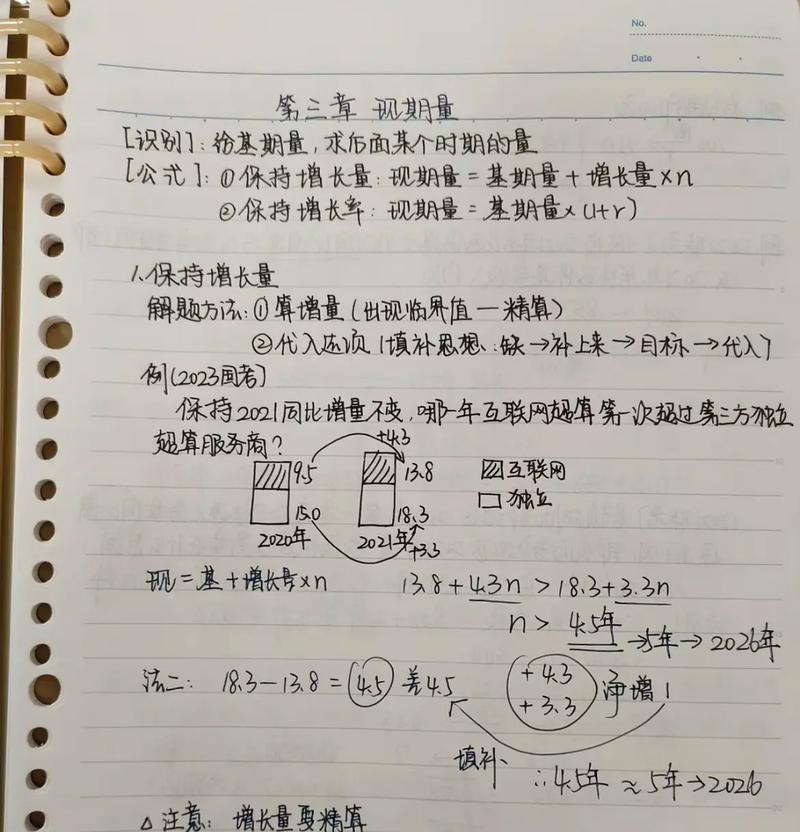 No.
Date
第三章 现期量
[识别]：给基期量，求后面某个时期的量
[公式]：①保持增长量：现期量＝基期量＋增长量×n
②保持增长率：现期量＝基期量×(1+r)
1.保持增长量
解题方法：①算增量(出现临界值一精算)
②代入选项(填补思想：缺→补上来→目标→代入)
例(2023国考)
保持2021同比增量不变，哪一年互联网超算第一次超过第三方独立
超算服务商？
+4.3
9.5 13.8 互联网
15.0 18.3 独立
2020年 2021年 +3.3
现＝基＋增长量×n 13.8+4.3n>18.3+3.3n
n> 4.5年→5年→2026年
法二：18.3－13.8＝4.5 差4.5 +4.3 净增1
+3.3
填补
∴4.5年≈5年→2026
△注意：增长量要精算